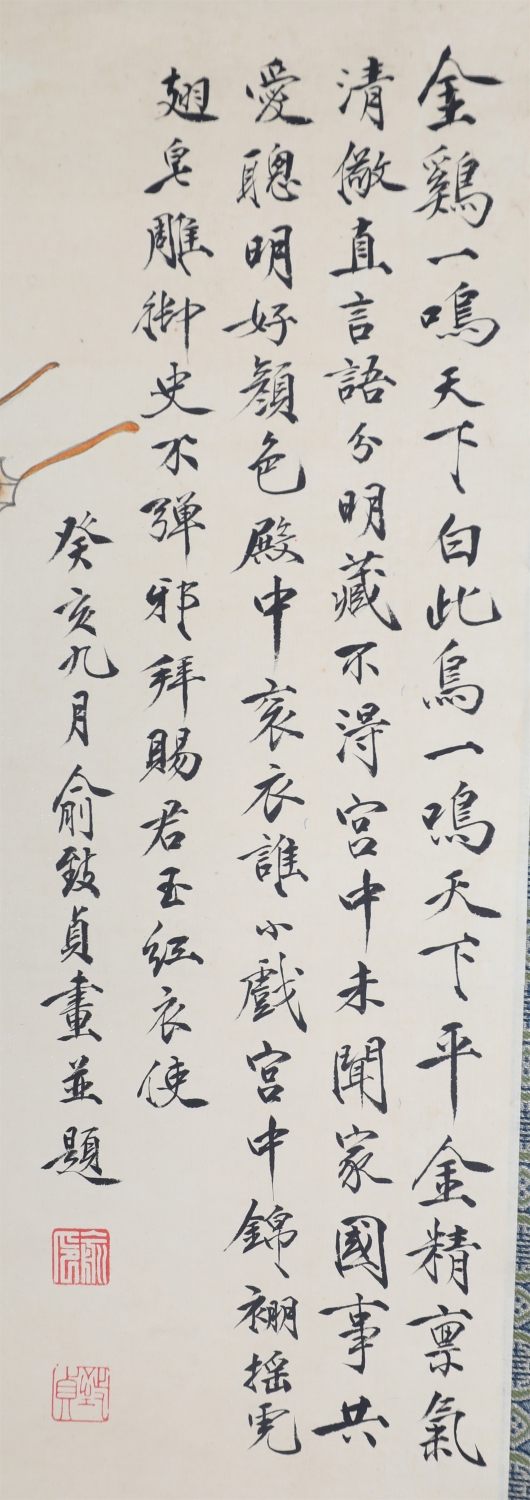 金鷄一鳴天下白此鳥一鳴天下平金精禀氣
清儆直言語分明藏不得宫中未聞家國事共
愛聰明好顔色殿中衮衣誰小戲宫中錦褓摇
翅皂雕御史不彈邪拜賜君王紅衣使
癸亥九月俞致貞畫並題
俞
致貞